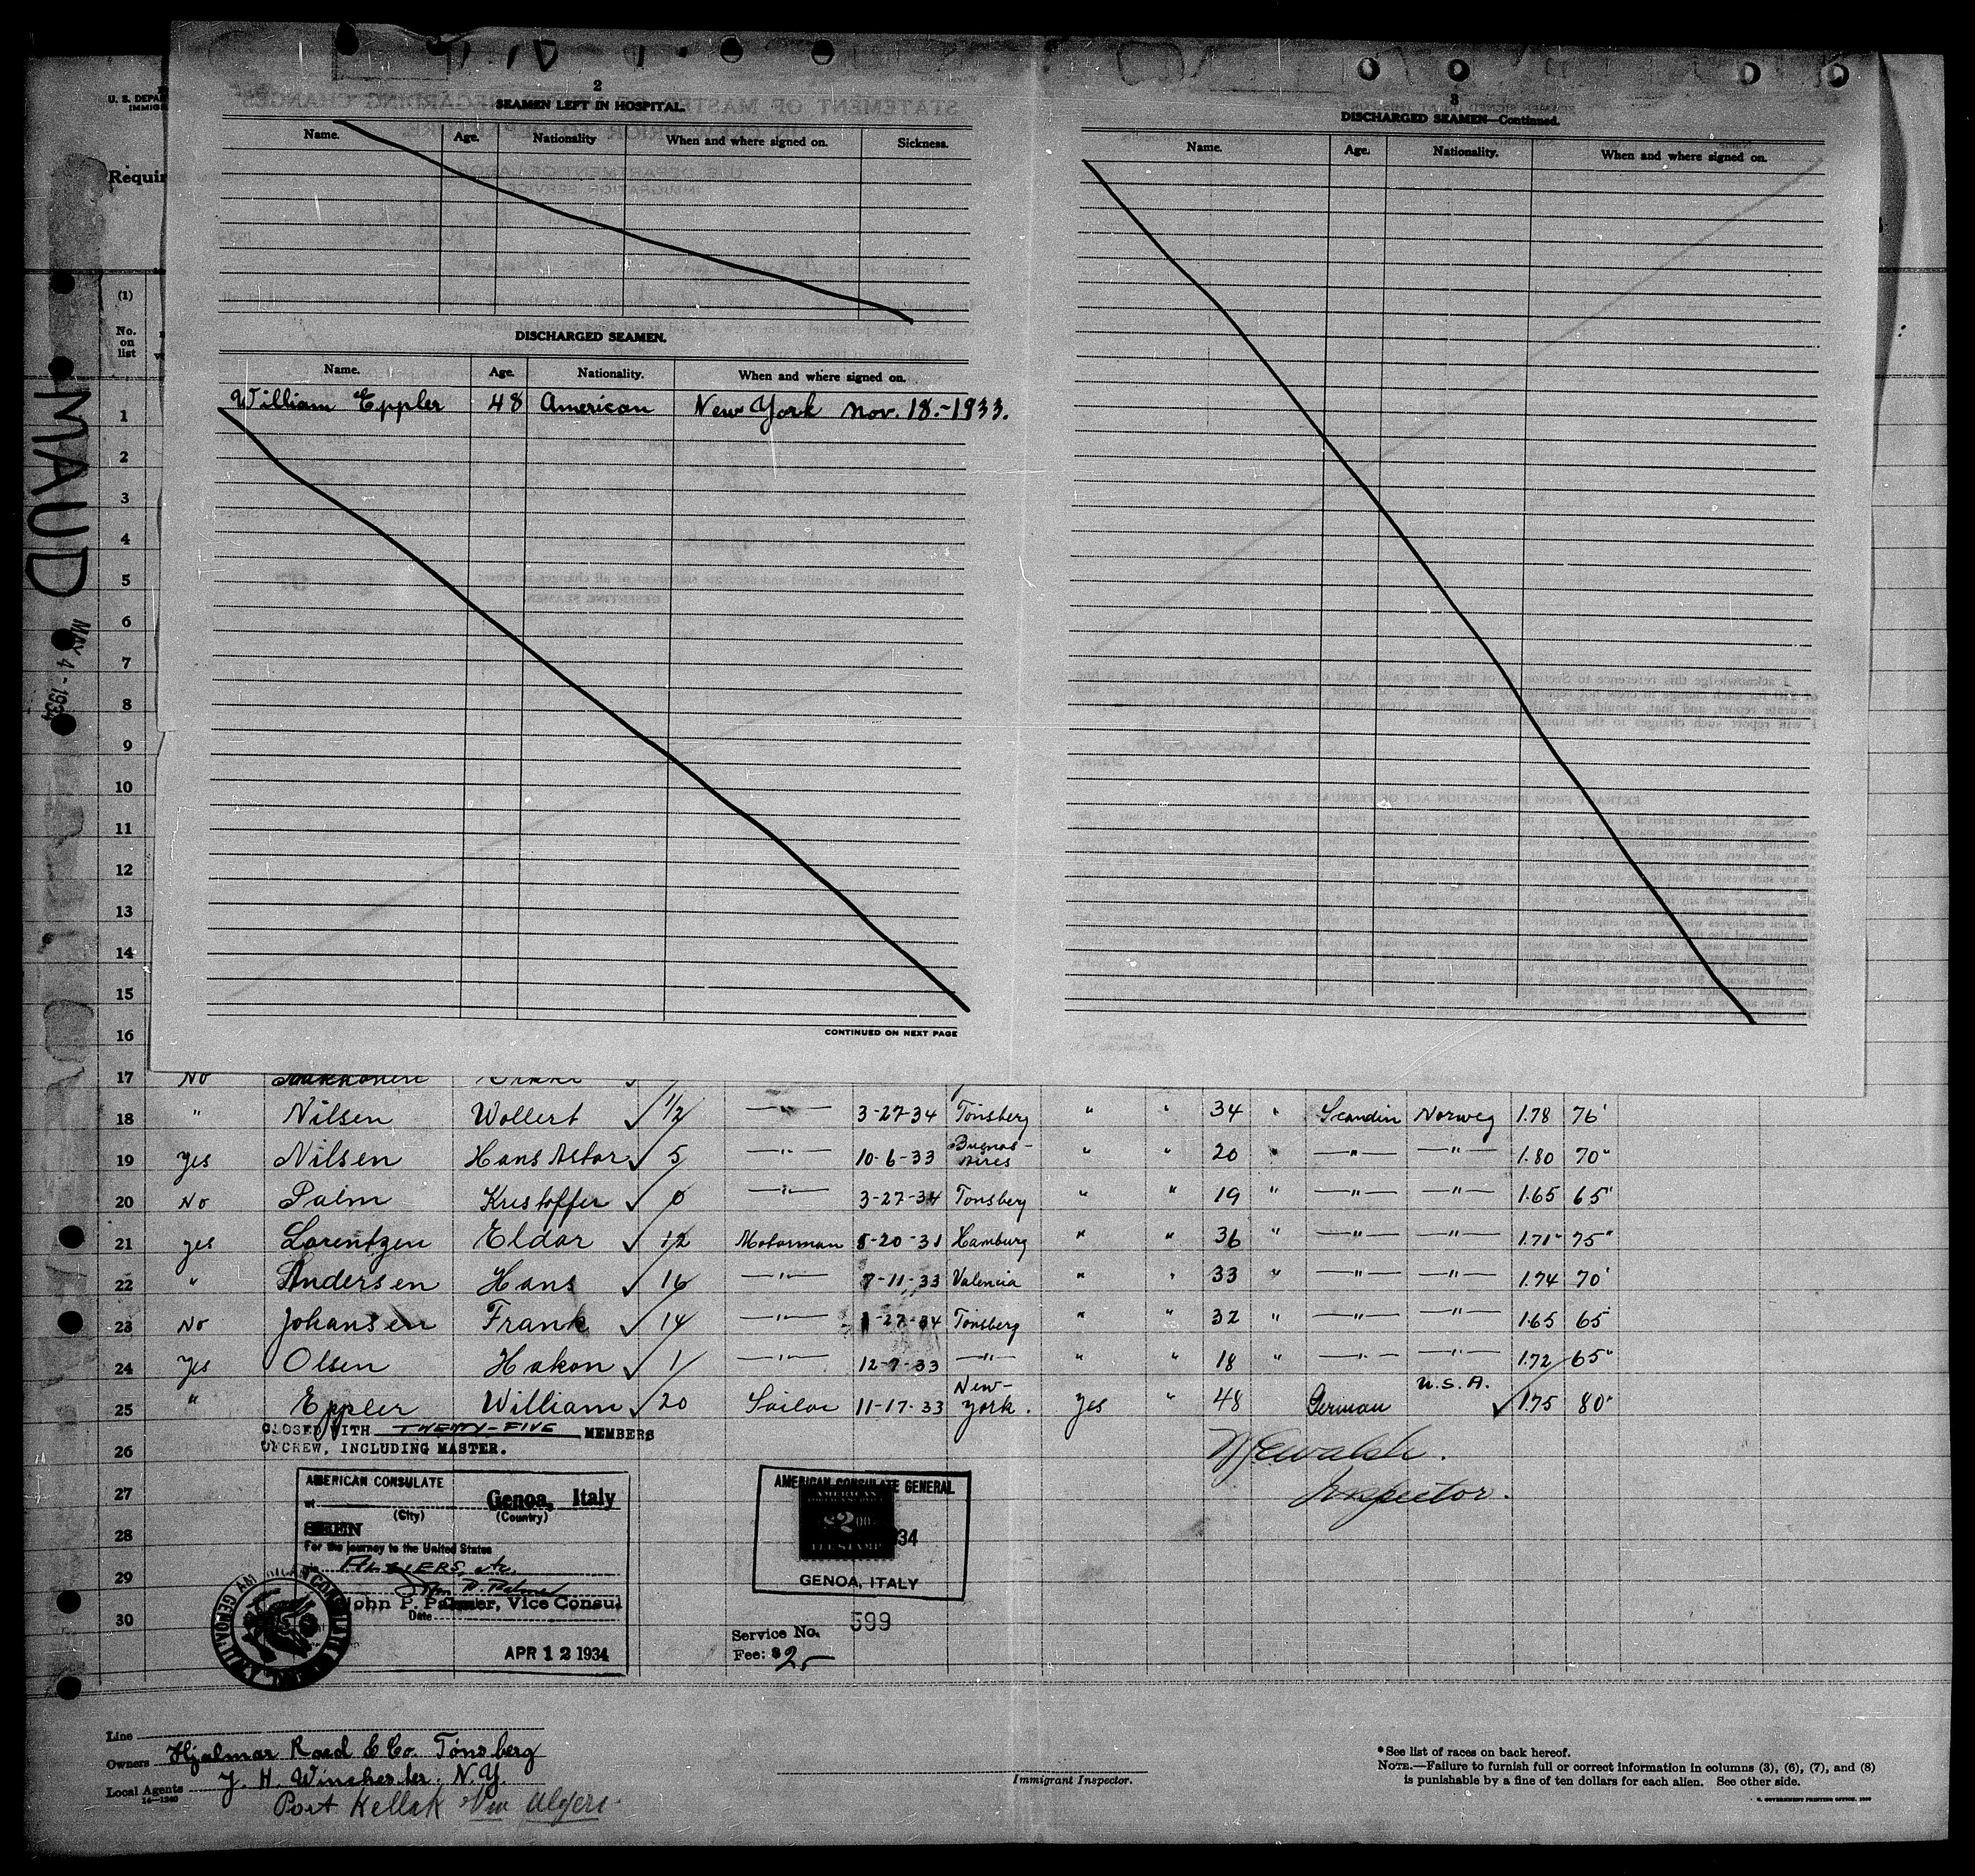 U. S. DEPA
IMMIG
Requir
(1)
No.
on
list
MAUD
MAY 4 - 1934
2
SEAMEN LEFT IN HOSPITAL.
Name. Age. Nationality When and where signed on. Sickness.
DISCHARGED SEAMEN.
Name. Age. Nationality. When and where signed on.
William Eppler 48 American New York Nov. 18.-1933.
CONTINUED ON NEXT PAGE
3
DISCHARGED SEAMEN—Continued.
Name. Age. Nationality. When and where signed on.
1
2
3
4
5
6
7
8
9
10
11
12
13
14
15
16
17 No
18 " Nilsen Wollert ✓ 1/2 —"— 3-27-34 Tönsberg " " 34 " Scandin Norweg 1.78 76'
19 yes Nilsen Hans Astor ✓ 5 —"— 10-6-33 Buenos-Aires " " 20 " —"— —"— 1.80 70"
20 No Palm Kristoffer ✓ 0 —"— 3-27-34 Tonsberg " " 19 " —"— —"— 1.65 65"
21 yes Lorentzen Eldor ✓ 12 Motorman 8-20-31 Hamburg " " 36 " —"— —"— 1.71" 75"
22 " Andersen Hans ✓ 16 —"— 7-11-33 Valencia " " 33 " —"— —"— 1.74 70'
23 No Johansen Frank ✓ 14 —"— -27-34 Tönsberg " " 32 " —"— —"— 1.65 65
24 Yes Olsen Hakon ✓ 1 —"— 12-7-33 —"— " " 18 " —"— —"— 1.72 65"
25 " Eppler William ✓ 20 Sailor 11-17-33 New-york. Yes " 48 German U.S.A. ✓ 1.75 80"
CLOSED WITH TWENTY-FIVE MEMBERS
OF CREW, INCLUDING MASTER.
26
27
28
29
30
AMERICAN CONSULATE
at Genoa, Italy
(City) (Country)
SEEN
For the journey to the United States
ALGIERS, etc.
John P. Palmer, Vice Consul
Date
APR 12 1934
AMERICAN CONSULATE GENERAL
AMERICAN
$2.00
FEE STAMP
34
GENOA, ITALY
Service No. 599
Fee: $ 2-
Walsh.
Inspector.
Line
Owners Hjalmar Roed & Co. Tönsberg
Local Agents J. H. Winchester. N.Y.
14—1240
Port Kellak Nw Algers
Immigrant Inspector.
*See list of races on back hereof.
NOTE.—Failure to furnish full or correct information in columns (3), (6), (7), and (8)
is punishable by a fine of ten dollars for each alien. See other side.